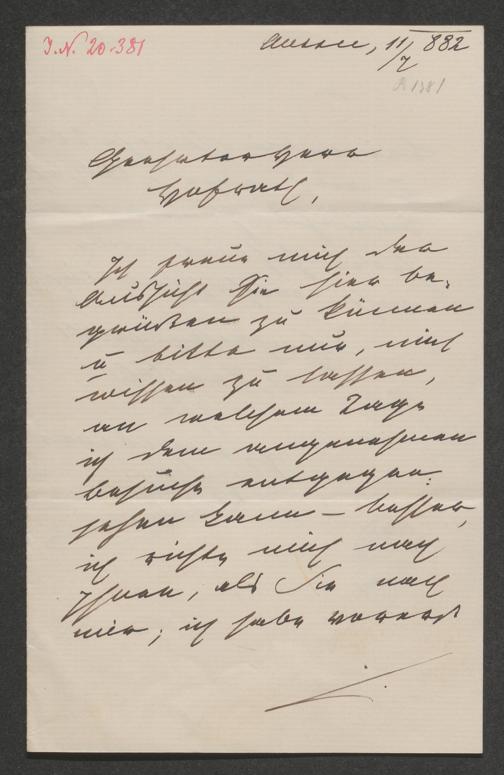 J.N. 20.381
Aussee, 11/7 882
Geehrtester Herr
Hofrath,
Ich freue mich der
Aussicht Sie hier be-
grüßen zu können
u bitte nur, mich
wissen zu lassen,
an welchem Tage
ich dem angenehmen
Besuche entgegen-
sehen kann – besser,
ich richte mich nach
Ihnen, als Sie nach
mir; ich habe vorerst